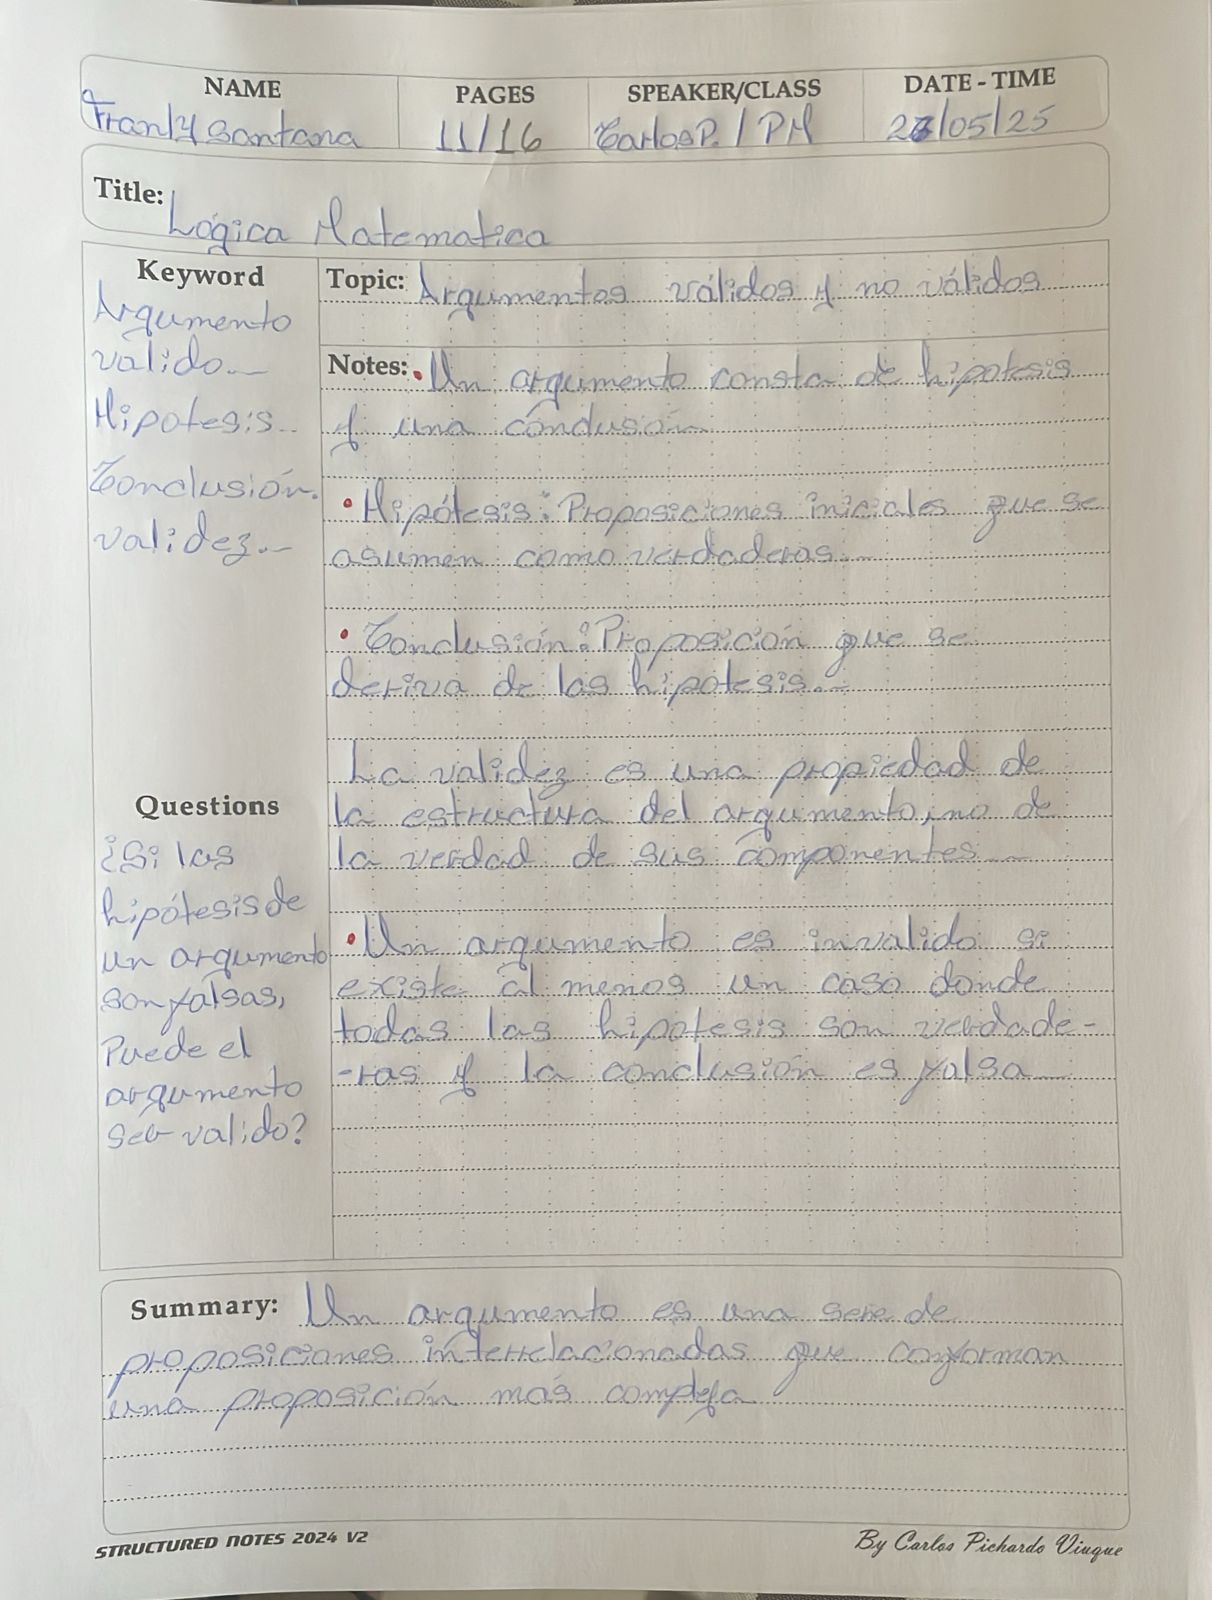 NAME PAGES SPEAKER/CLASS DATE - TIME
Franly Santana 11/16 Carlos P. / PM 23/05/25
Title: Lógica Matematica
Keyword
Argumento
valido.
Hipotesis..
Conclusión.
validez.
Questions
¿Si las
hipótesis de
un argumento
son falsas,
Puede el
argumento
ser valido?
Topic: Argumentos válidos y no válidos
Notes: • Un argumento consta de hipotesis
y una conclusión
• Hipótesis: Proposiciones iniciales que se
asumen como verdaderas.
• Conclusión: Proposición que se
deriva de las hipotesis.
La validez es una propiedad de
la estructura del argumento, no de
la verdad de sus componentes
• Un argumento es invalido si
existe al menos un caso donde
todas las hipotesis son verdade-
-ras y la conclusión es falsa
Summary: Un argumento es una serie de
proposiciones interrelacionadas que conforman
una proposición más compleja
STRUCTURED NOTES 2024 V2 By Carlos Pichardo Viuque